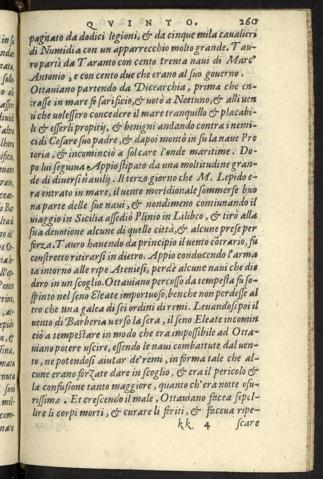 QVINTO. 260
pagnato da dodici legioni, & da cinque mila cavalieri
di Numidia con un apparrecchio molto grande. Tau-
ro partì da Taranto con cento trenta naui di Marc'
Antonio, e con cento due che erano al suo gouerno.
Ottauiano partendo da Dicearchia, prima che en-
trasse in mare fe sarificio, & uotò a Nettuno, & alli uen
ti che uolessero concedere il mare tranquillo & placabi-
li & esserli propitij, & benigni andando contra i nemi-
ci di Cesare suo padre, & dapoi montò in su la naue Pre
toria, & incominciò a solcare l'onde maritime. Do-
po lui seguiua Appio stipato da una moltitudine gran-
de di diuersi nauilij. Il terzo giorno che M. Lepido e-
ra entrato in mare, il uento meridionale sommerse buo
na parte delle sue naui, & nondimeno coniunando il
uiaggio in Sicilia assediò Plinio in Lilibeo, & tirò alla
sua deuotione alcune di quelle città, & alcune prese per
forza. Tauro hauendo da principio il uento cõtrario, fu
constretto ritirarsi in dietro. Appio conducendo l'arma
ta intorno alle ripe Ateniesi, perdè alcune naui che die
dero in un scoglio. Ottauiano percosso da tempesta fu so-
spinto nel seno Eleate importuoso, benche non perdesse al
tro che una galea di sei ordini di remi. Leuandosi poi il
uento di Barberia uerso la sera, il seno Eleate incomin
ciò a tempestare in modo che era impossibile ad Otta-
uiano potere uscire, essendo le naui combattute dal uen-
to, ne potendosi aiutar de' remi, in forma tale che al-
cune erano forzate dare in scoglio, & era il pericolo &
la confusione tanto maggiore, quanto ch'era notte oscu-
rissima. Et crescendo il male, Ottauiano faceua sepel-
lire li corpi morti, & curare li feriti, & faceua ripe-
kk 4 scare